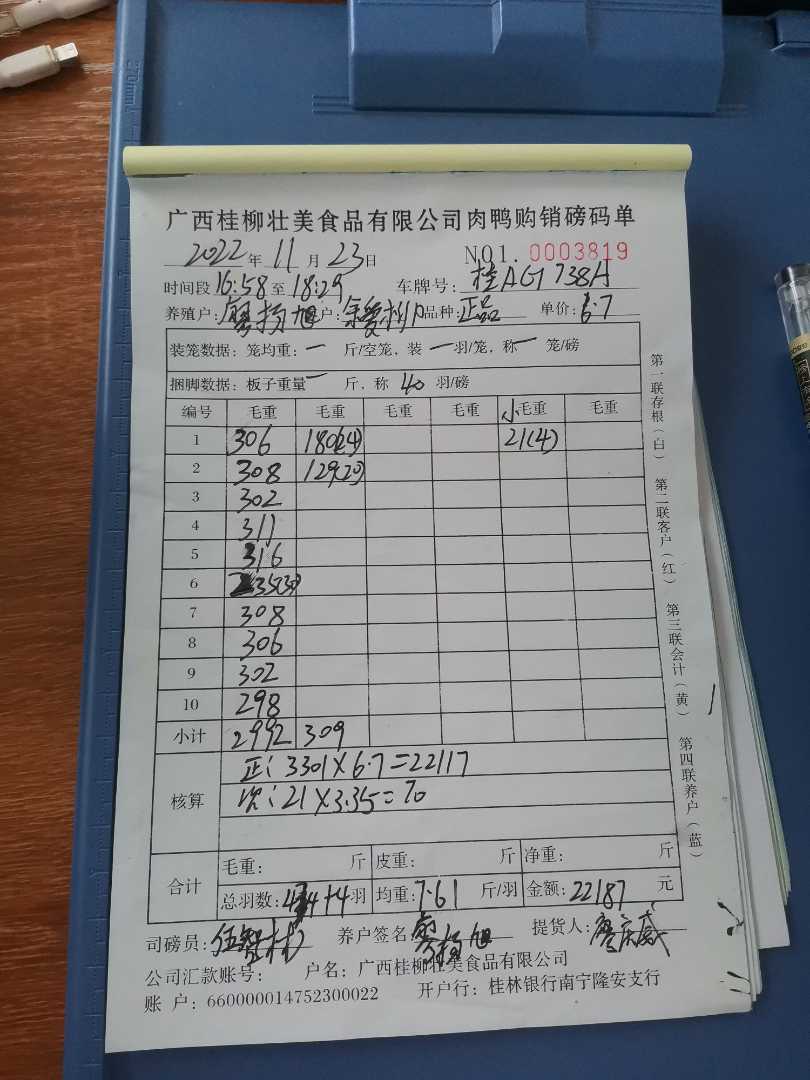 广西桂柳壮美食品有限公司肉鸭购销磅码单
2022年 11月 23日 NO1. 0003819
时间段 16:58 至 18:29 车牌号: 桂AG1738A
养殖户: 廖扬旭 户: 品种: 正品 单价: 6.7
装笼数据: 笼均重: 一 斤/空笼, 装 一 羽/笼, 称 一 笼/磅
捆脚数据: 板子重量 一 斤, 称 40 羽/磅
编号 毛重 毛重 毛重 毛重 小毛重 毛重
1 306 180(24) 21(4)
2 308 129(20)
3 302
4 311
5 316
6 235(30)
7 308
8 306
9 302
10 298
小计 2992 309
核算 正: 3301×6.7=22117
次: 21×3.35=70
合计 毛重: 斤 皮重: 斤 净重: 斤
总羽数: 434+4 羽 均重: 7.61 斤/羽 金额: 22187 元
司磅员: 伍智林 养户签名: 廖扬旭 提货人: 廖庆威
公司汇款账号: 户名: 广西桂柳壮美食品有限公司
账 户: 660000014752300022 开户行: 桂林银行南宁隆安支行
第一联存根(白) 第二联客户(红) 第三联会计(黄) 第四联养户(蓝)
270mm